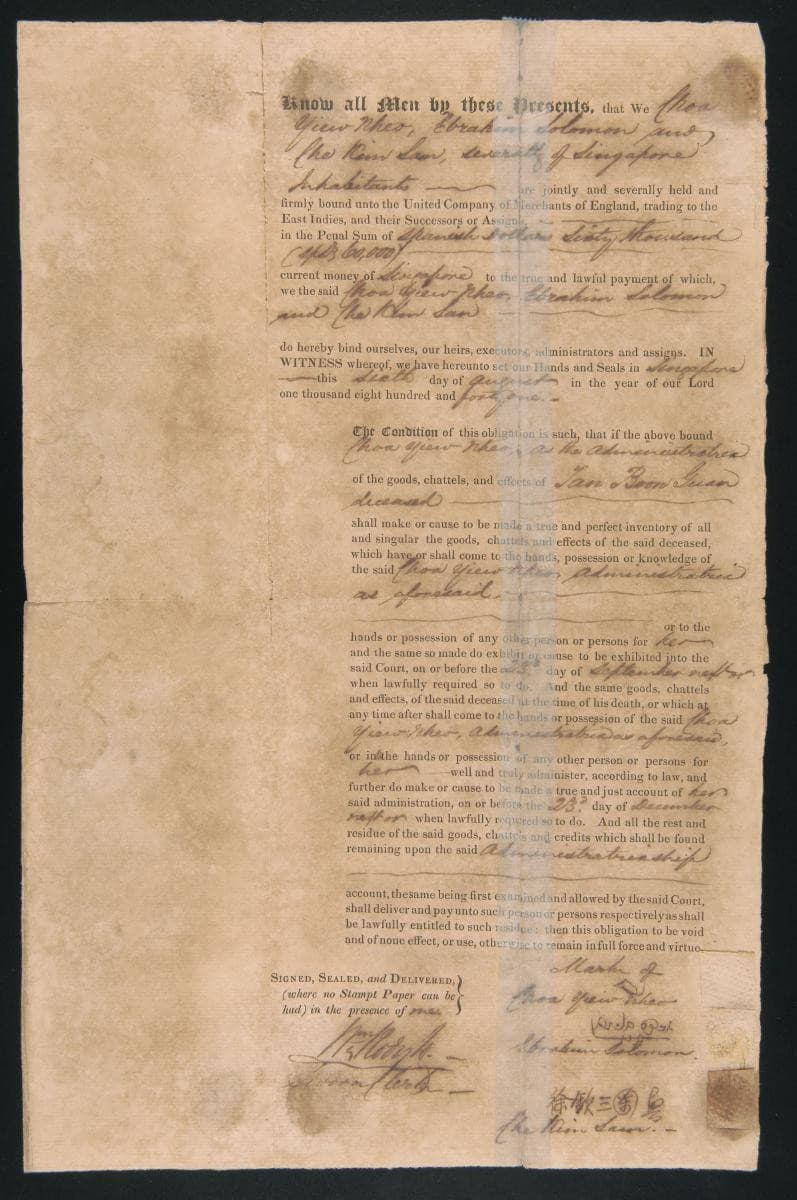 Know all Men by these Presents, that We Choa
Yiew Nheo, Ebrahim Solomon and
Che Kim San, severally of Singapore
Inhabitants are jointly and severally held and
firmly bound unto the United Company of Merchants of England, trading to the
East Indies, and their Successors or Assigns,
in the Penal Sum of Spanish Dollars Sixty thousand
60,000)
current money of Singapore to the true and lawful payment of which,
we the said Choa Yiew Nheo, Ebrahim Solomon
and Che Kim San
do hereby bind ourselves, our heirs, executors, administrators and assigns. IN
WITNESS whereof, we have hereunto set our Hands and Seals in Singapore
this Sixth day of August in the year of our Lord
one thousand eight hundred and forty one.
The Condition of this obligation is such, that if the above bound
Choa Yiew Nheo, as the Administratrix
of the goods, chattels, and effects of Tan Boon Guan
deceased
shall make or cause to be made a true and perfect inventory of all
and singular the goods, chattels and effects of the said deceased,
which have or shall come to the hands, possession or knowledge of
the said Choa Yiew Nheo, Administratrix
as aforesaid.
or to the
hands or possession of any other person or persons for her
and the same so made do exhibit or cause to be exhibited into the
said Court, on or before the 23d day of September next or
when lawfully required so to do. And the same goods, chattels
and effects, of the said deceased at the time of his death, or which at
any time after shall come to the hands or possession of the said Choa
Yiew Nheo, Administratrix as aforesaid,
or in the hands or possession of any other person or persons for
her well and truly administer, according to law, and
further do make or cause to be made a true and just account of her
said administration, on or before the 23d day of December
next or when lawfully required so to do. And all the rest and
residue of the said goods, chattels and credits which shall be found
remaining upon the said Administratrixship
account, the same being first examined and allowed by the said Court,
shall deliver and pay unto such person or persons respectively as shall
be lawfully entitled to such residue: then this obligation to be void
and of none effect, or use, otherwise to remain in full force and virtue.
Mark of
Choa Yiew Nheo
SIGNED, SEALED, and DELIVERED,
(where no Stampt Paper can be
had) in the presence of me
Ebrahim Solomon
Sworn Clerk
三
Che Kim San.